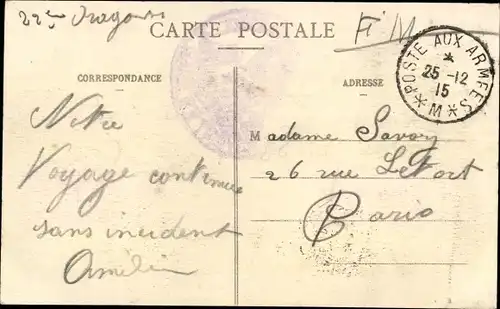 22e Dragons
CARTE POSTALE
F. M.
CORRESPONDANCE
ADRESSE
* POSTE AUX ARMEES *
*
25 -12
15
M
Notre
Voyage continue
sans incident
Madame Savoy
26 rue Le Fort
Paris